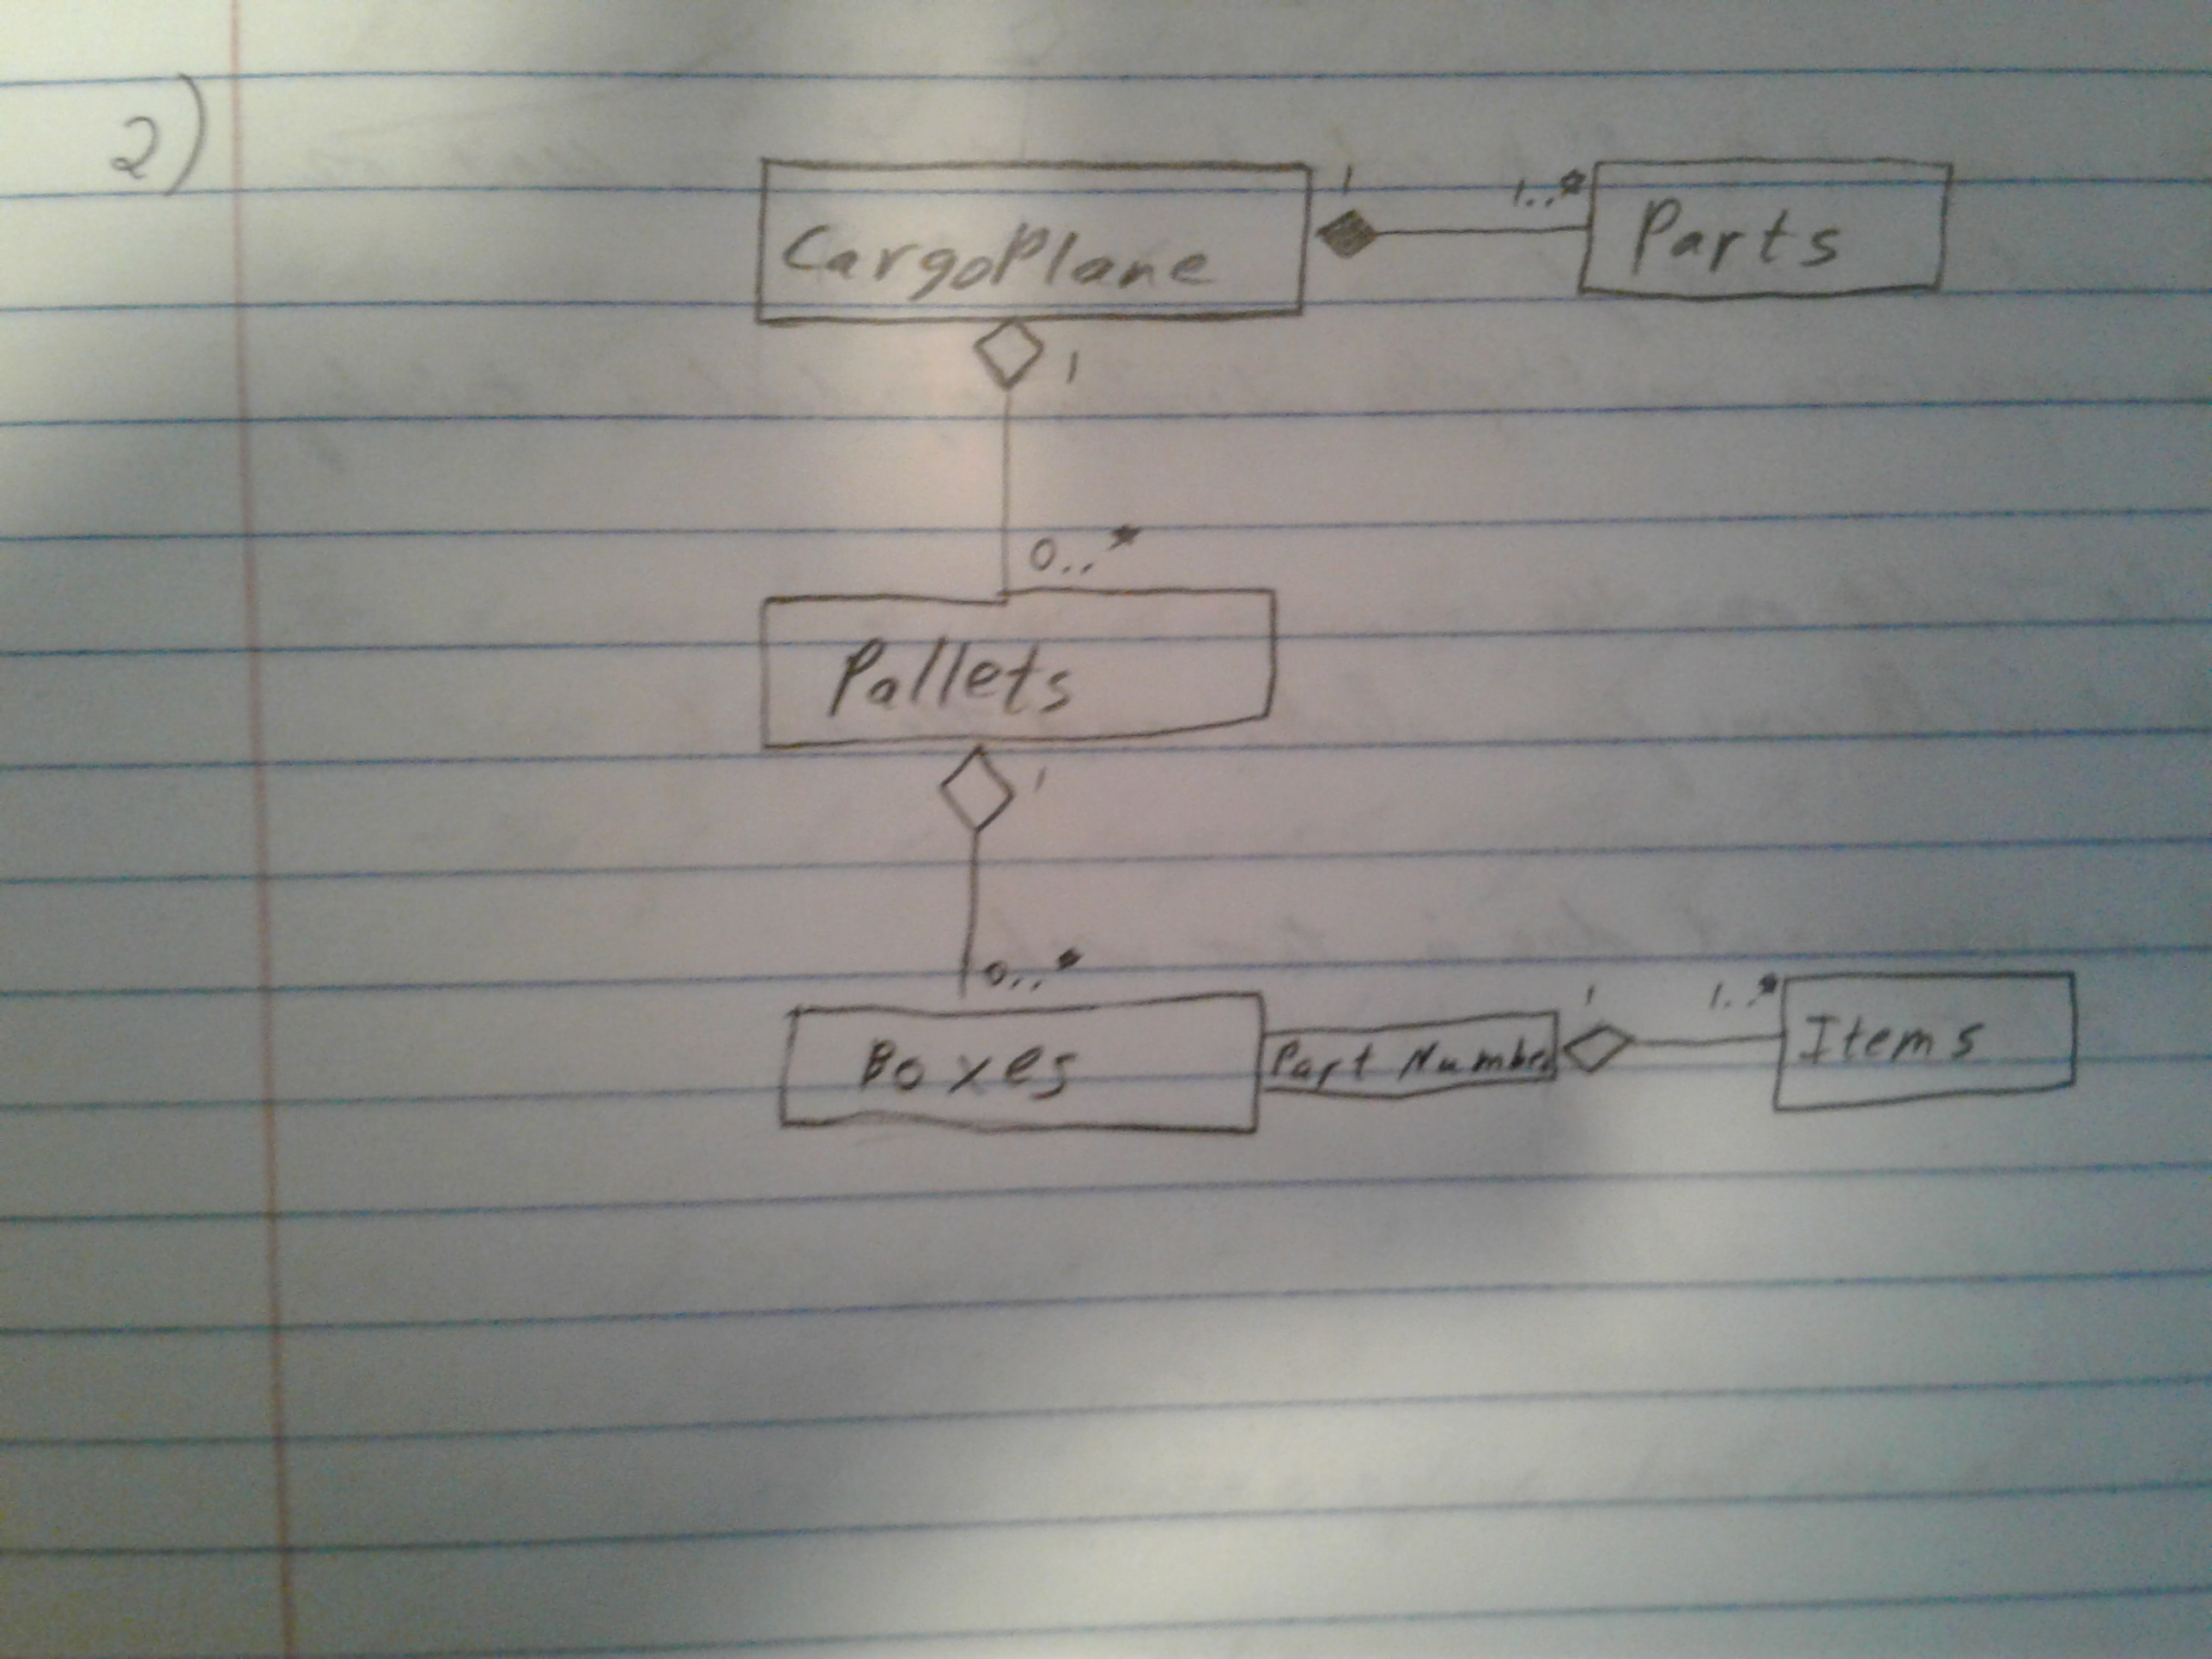 2)
1 1..*
CargoPlane Parts
1
0..*
Pallets
1
0..*
1 1..*
Boxes Part Number Items